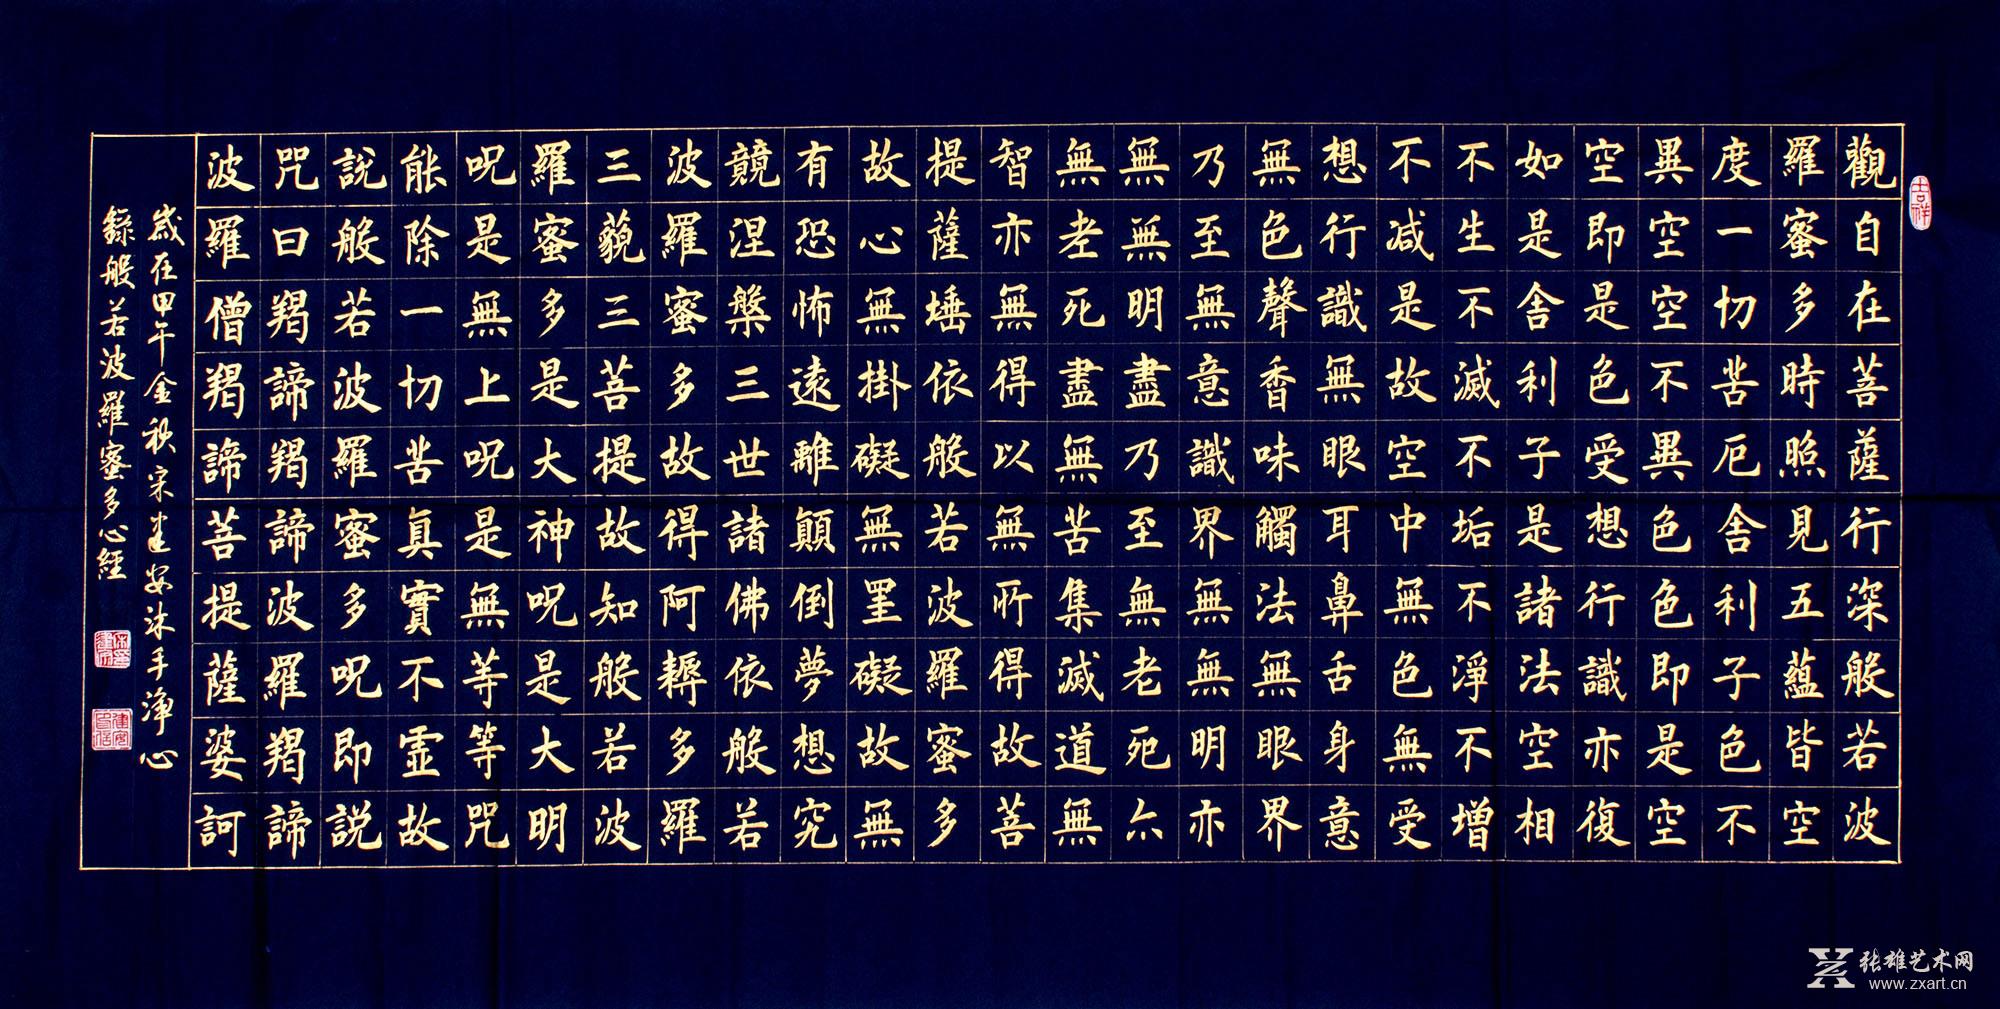 吉祥
觀自在菩薩行深般若波
羅蜜多時照見五蘊皆空
度一切苦厄舍利子色不
異空空不異色色即是空
空即是色受想行識亦復
如是舍利子是諸法空相
不生不滅不垢不淨不增
不减是故空中無色無受
想行識無眼耳鼻舌身意
無色聲香味觸法無眼界
乃至無意識界無無明亦
無無明盡乃至無老死亦
無老死盡無苦集滅道無
智亦無得以無所得故菩
提薩埵依般若波羅蜜多
故心無掛礙無罣礙故無
有恐怖遠離顛倒夢想究
競涅槃三世諸佛依般若
波羅蜜多故得阿耨多羅
三藐三菩提故知般若波
羅蜜多是大神呪是大明
呪是無上呪是無等等咒
能除一切苦真實不虛故
說般若波羅蜜多呪即説
咒曰羯諦羯諦波羅羯諦
波羅僧羯諦菩提薩婆訶
歲在甲午金秋宋建安沐手淨心
錄般若波羅蜜多心經
张雄艺术网
www.zxart.cn